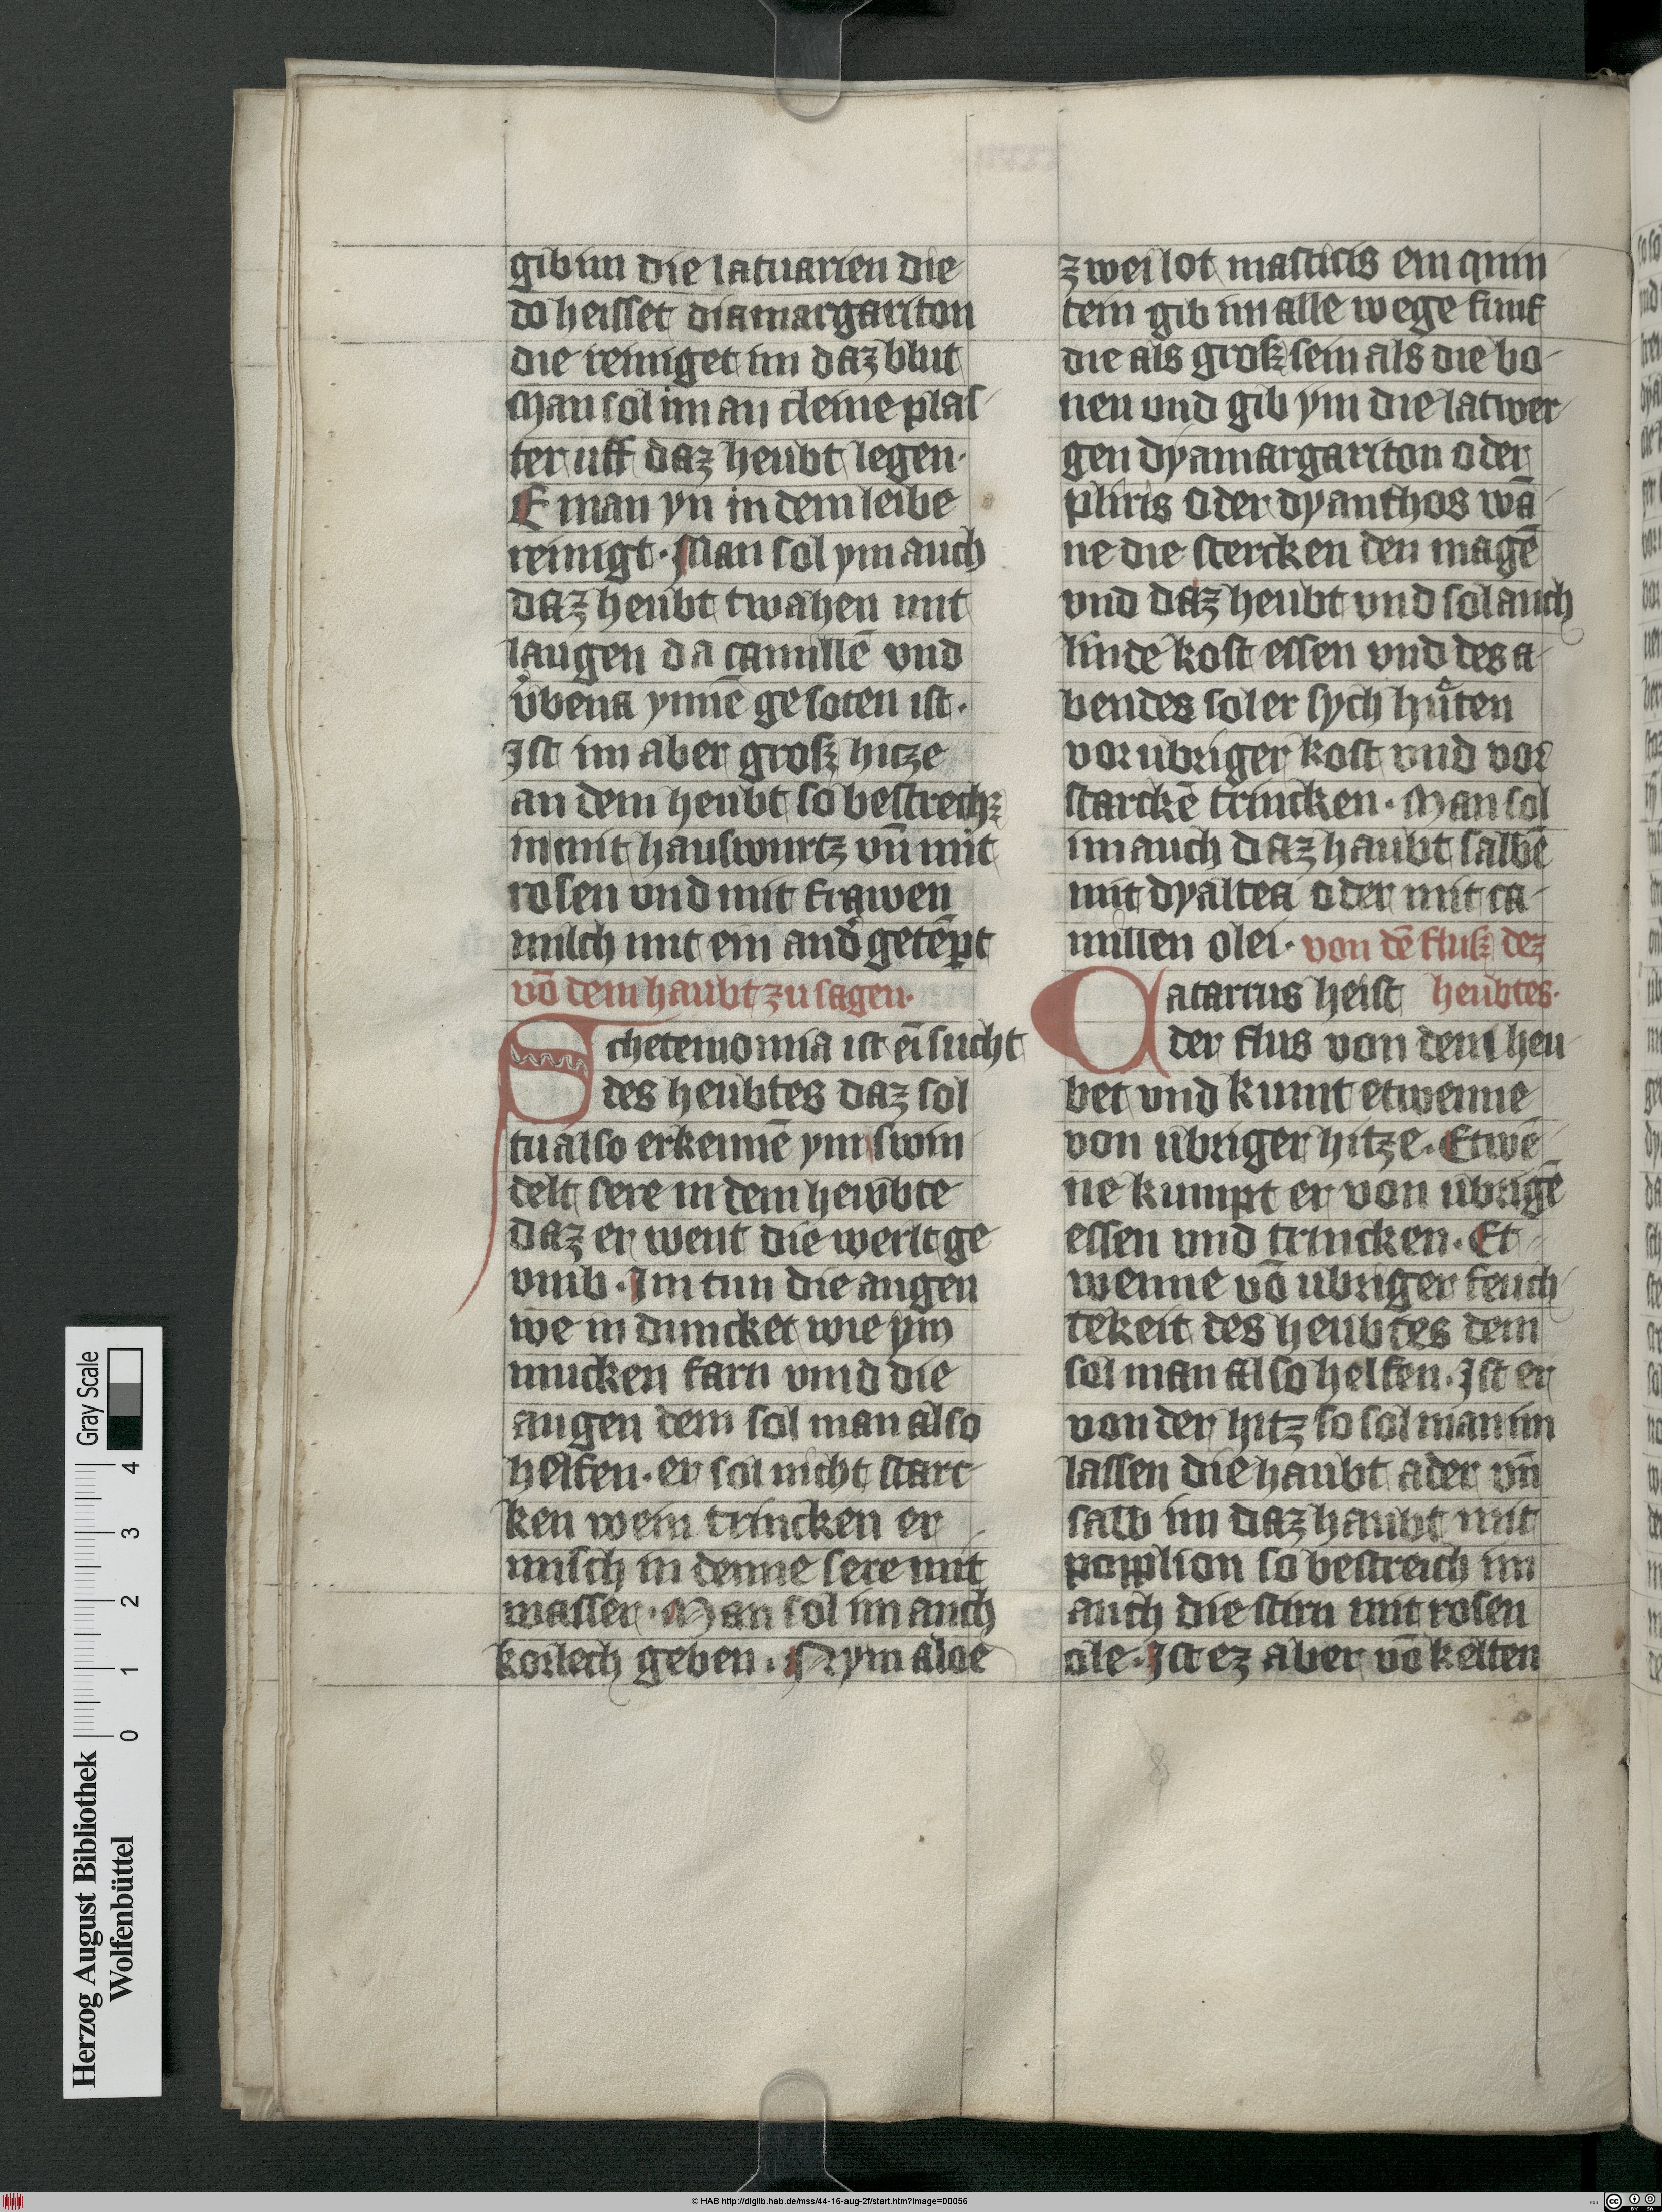 gib im die latuarien die
do heisset diamargariton
die reiniget im daz blut
Man sol im an cleine plas
ter uff daz heubt legen·
E man yn in dem leibe
reinigt· Man sol ym auch
daz heubt twahen mit
laugen da camillē vnd
v̊bena ynnē gesoten ist·
Ist im aber grosz hitze
an dem heubt so bestrech
in mit hauswurtz vn̄ mit
rosen vnd mit frawen
milch mit ein and̓ getēpt
vō dem haubt zu sagen·
Schetemomia ist eī sucht
des heubtes daz sol
tu also erkennē ym swin
delt sere in dem hewbte
daz er went die werlt ge
vmb· Im tun die augen
we in duncket wie ym
mucken farn vmd die
augen dem sol man also
helfen· er sol nicht starc
ken wein trincken er
misch in denne sere mit
wasser· Man sol im auch
korlech geben· Nym aloe
zwei lot masticis ein quin
tein gib im alle wege funf
die als grosz sein als die bo-
nen vnd gib ym die latwer
gen dyamargariton oder
pliris oder dyanthos wā
ne die stercken den magē
vnd daz heubt vnd sol auch
linde kost essen vnd des a-
bendes sol er sych hůten
vor ubriger kost vnd vor
starckē trincken· Man sol
im auch daz haubt salbē
mit dyaltea oder mit ca-
millen olei· von dē flusz dez
Catarrus heist heubtes·
der flus von dem heu
bet vnd kumt etwenne
von ubriger hitze· Etwē
ne kumpt er von ubrigē
essen vnd trincken· Et
wenne vō ubriger feuch
tekeit des heubtes dem
sol man also helfen· Ist er
von der hitz so sol man im
lassen die haubt ader vn̄
salb im daz haubt mit
popplion so bestreich im
auch die stirn mit rosen
ole· Ist ez aber vō kelten
Herzog August Bibliothek
Wolfenbüttel
0 1 2 3 4
Gray Scale
© HAB http://diglib.hab.de/mss/44-16-aug-2f/start.htm?image=00056